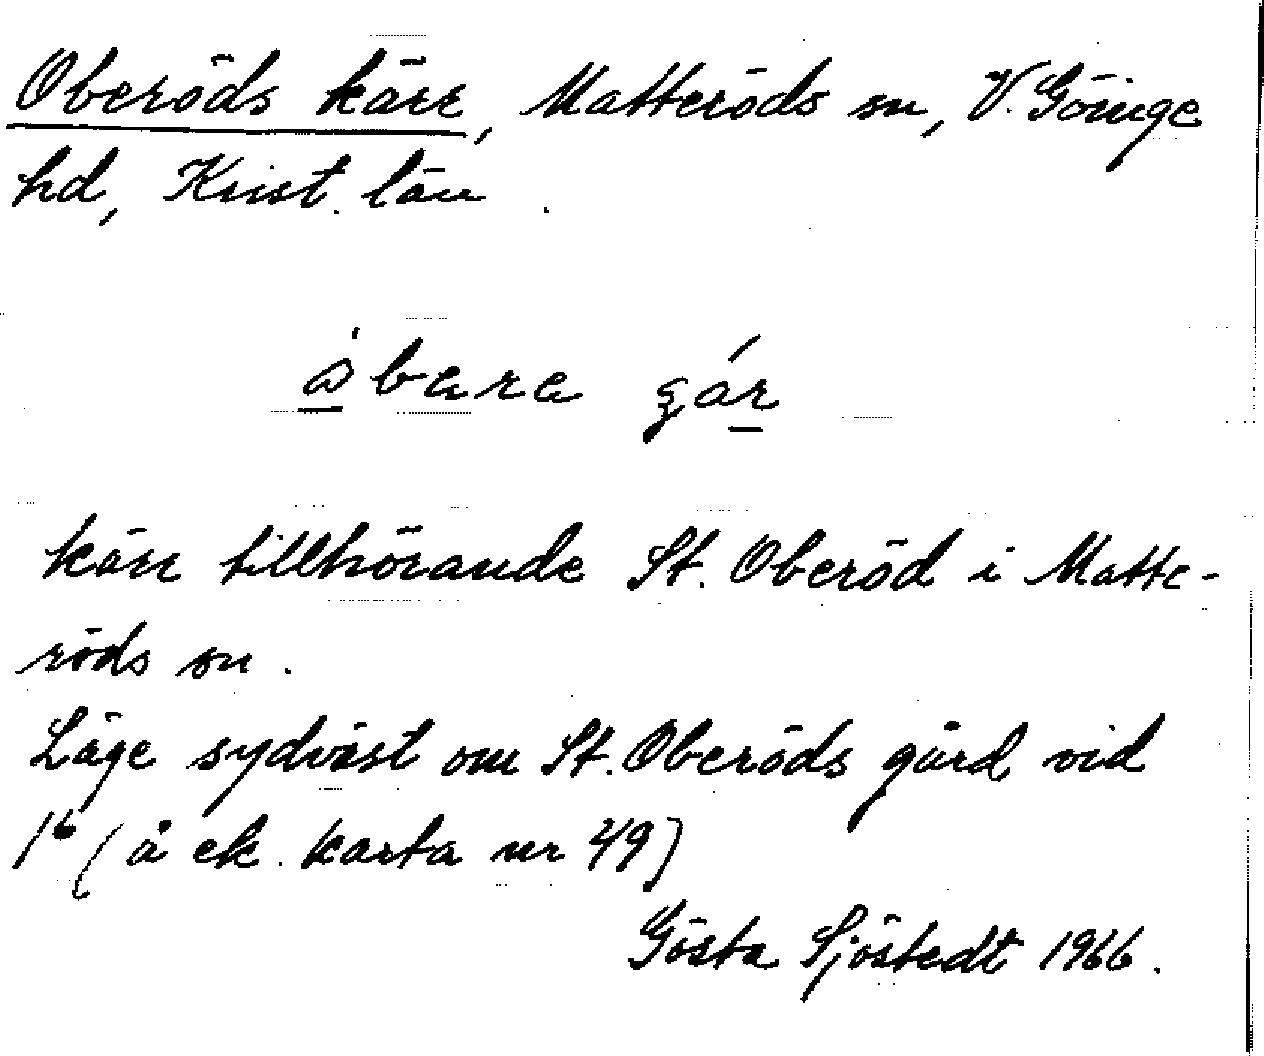 Oberöds kärr, Matteröds sn, V. Göinge
hd, Krist. län.
kärr tillhörande St. Oberöd i Matte-
röds sn.
Läge sydväst om St. Oberöds gård vid
1⁶ (å ek. karta nr 49)
Gösta Sjöstedt 1966.